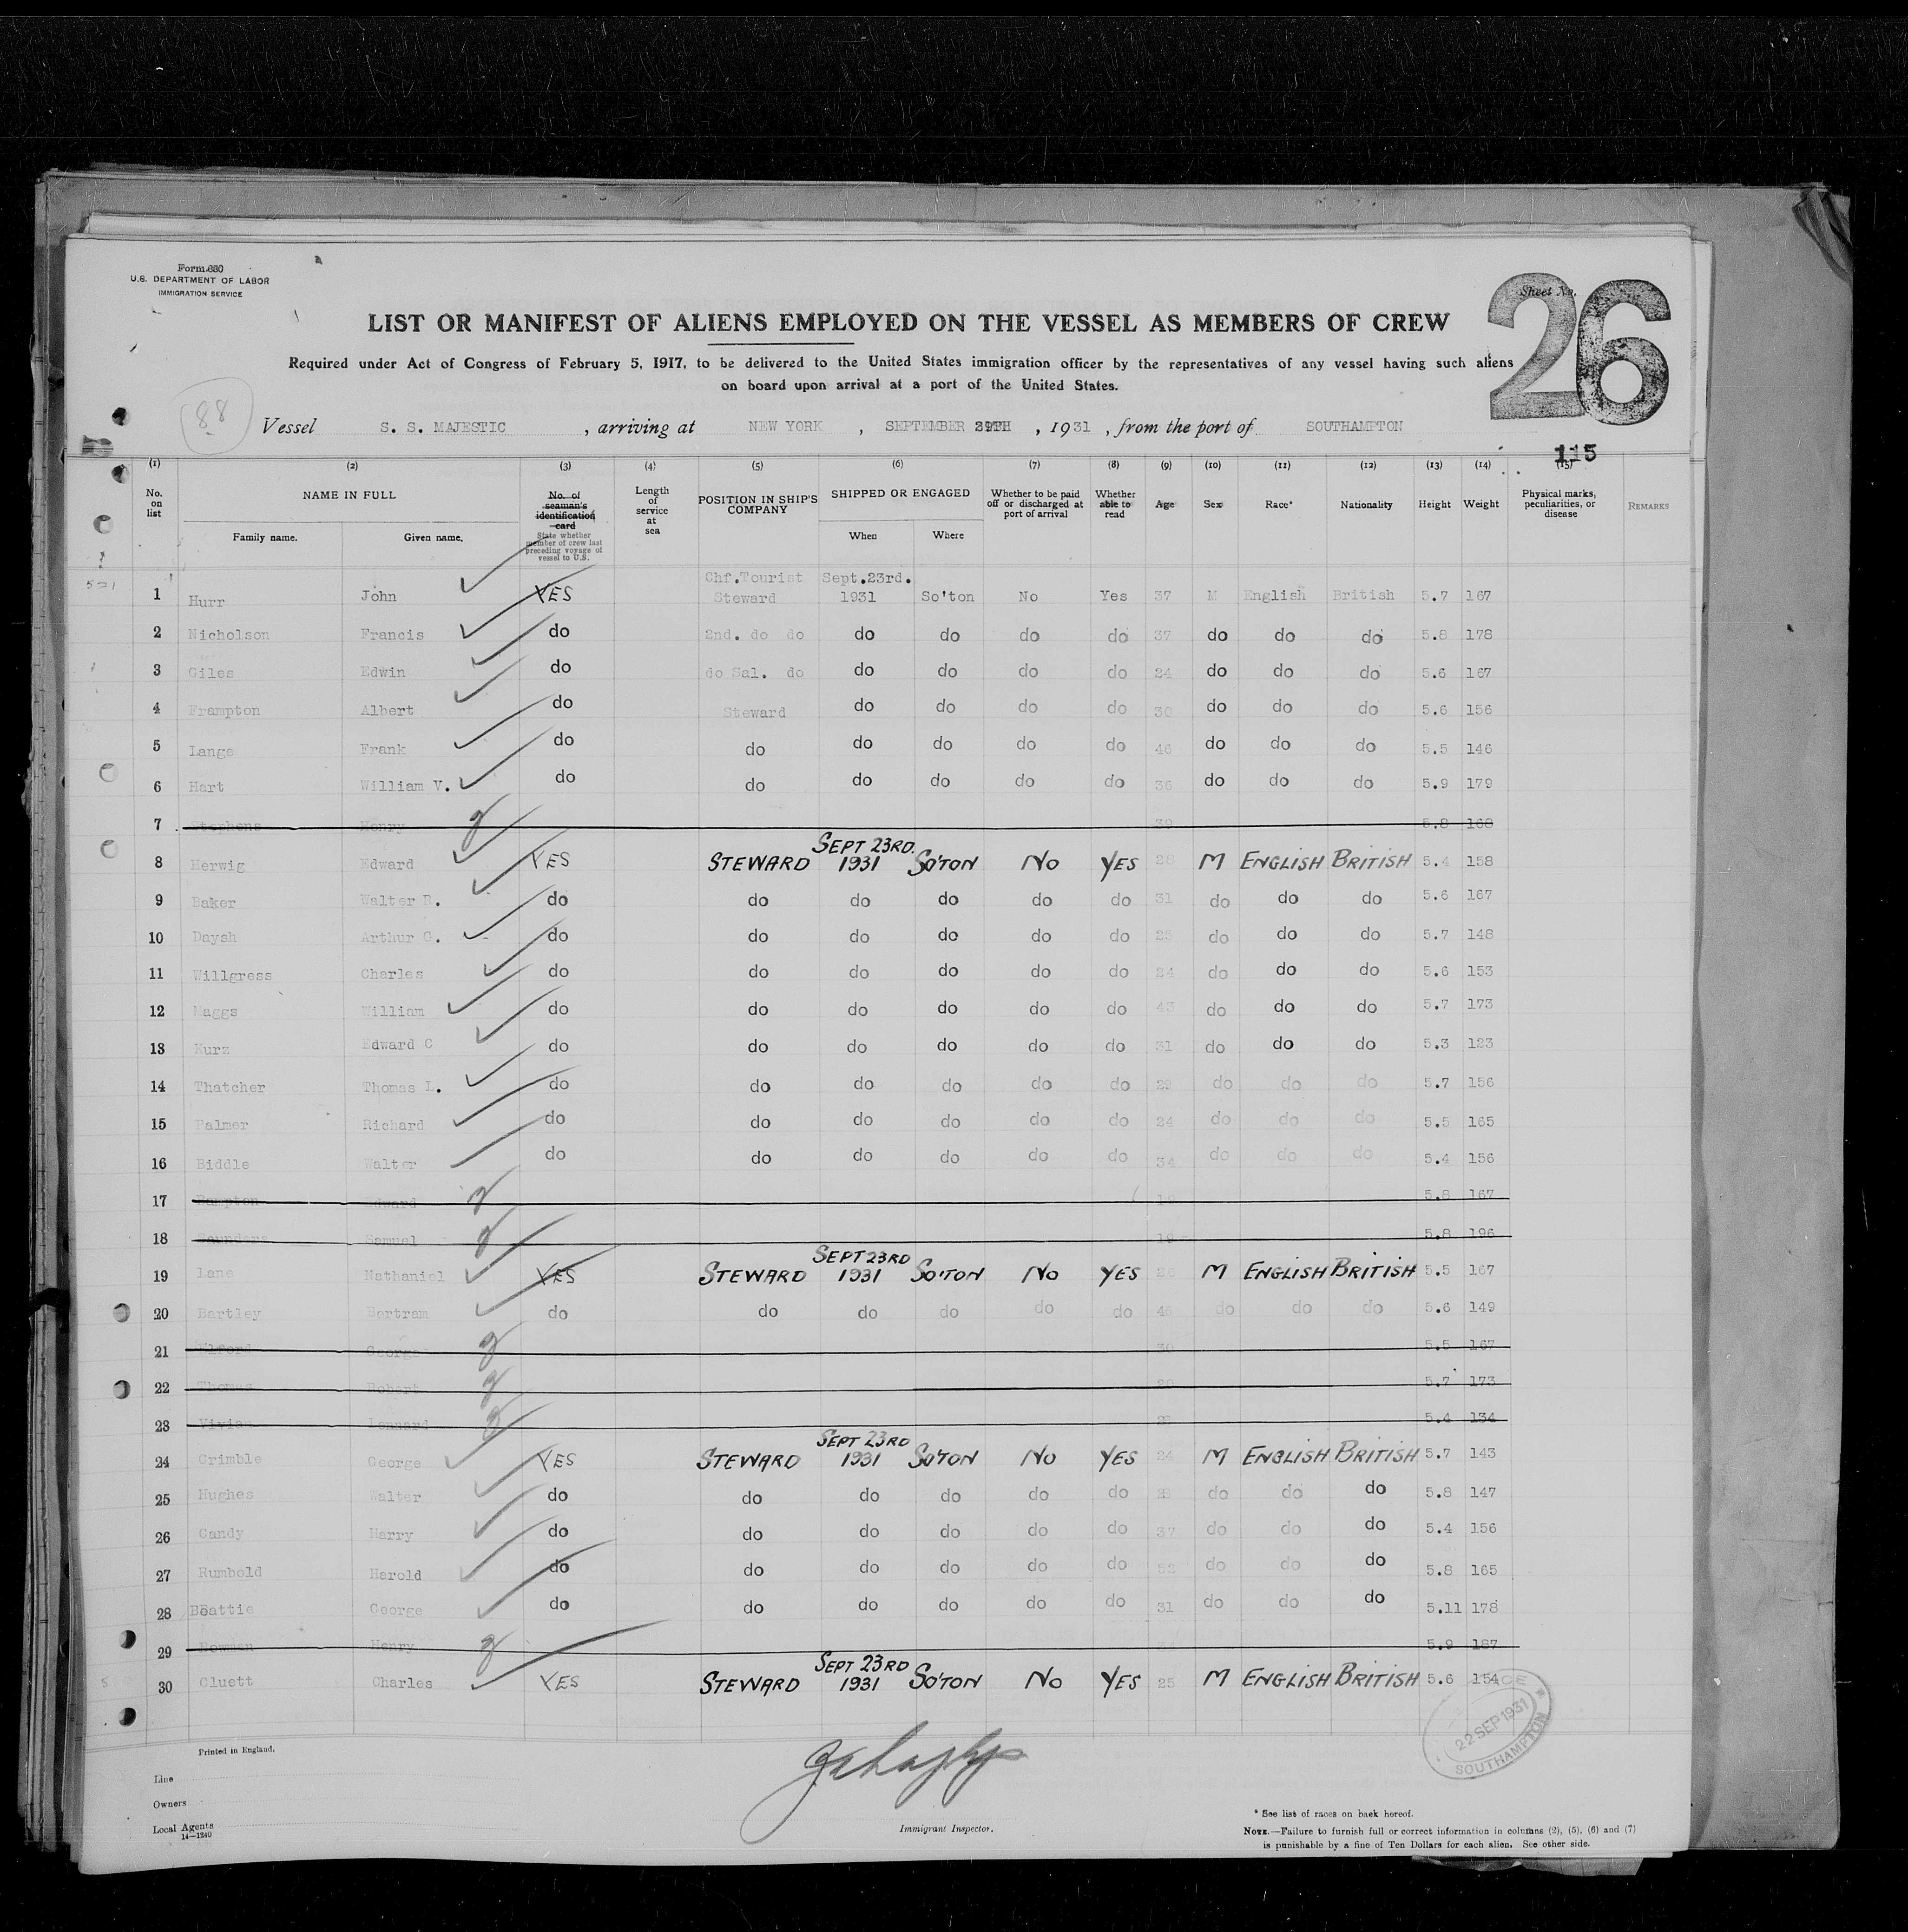 Form 680
U.S. DEPARTMENT OF LABOR
IMMIGRATION SERVICE
Sheet No. 26
LIST OR MANIFEST OF ALIENS EMPLOYED ON THE VESSEL AS MEMBERS OF CREW
Required under Act of Congress of February 5, 1917, to be delivered to the United States immigration officer by the representatives of any vessel having such aliens
on board upon arrival at a port of the United States.
88
Vessel S. S. MAJESTIC , arriving at NEW YORK , SEPTEMBER 29TH , 1931 , from the port of SOUTHAMPTON
115
(1) (2) (3) (4) (5) (6) (7) (8) (9) (10) (11) (12) (13) (14) (15)
No. on list NAME IN FULL Family name. Given name. No. of seaman's identification card State whether member of crew last preceding voyage of vessel to U.S. Length of service at sea POSITION IN SHIP'S COMPANY SHIPPED OR ENGAGED When Where Whether to be paid off or discharged at port of arrival Whether able to read Age Sex Race* Nationality Height Weight Physical marks, peculiarities, or disease REMARKS
521
1 Hurr John YES Chf.Tourist Steward Sept.23rd. 1931 So'ton No Yes 37 M English British 5.7 167
2 Nicholson Francis do 2nd. do do do do do do 37 do do do 5.8 178
3 Giles Edwin do do Sal. do do do do do 24 do do do 5.6 167
4 Frampton Albert do Steward do do do do 30 do do do 5.6 156
5 Lange Frank do do do do do do 46 do do do 5.5 146
6 Hart William V. do do do do do do 36 do do do 5.9 179
7 Stephens Henry 39 5.8 168
8 Herwig Edward YES STEWARD SEPT 23RD. 1931 SO'TON NO YES 28 M ENGLISH BRITISH 5.4 158
9 Baker Walter B. do do do do do do 31 do do do 5.6 167
10 Daysh Arthur G. do do do do do do 25 do do do 5.7 148
11 Willgress Charles do do do do do do 24 do do do 5.6 153
12 Maggs William do do do do do do 43 do do do 5.7 173
13 Kurz Edward C do do do do do do 31 do do do 5.3 123
14 Thatcher Thomas L. do do do do do do 29 do do do 5.7 156
15 Palmer Richard do do do do do do 24 do do do 5.5 165
16 Biddle Walter do do do do do do 34 do do do 5.4 156
17 Edward 5.8 167
18 Saunders Samuel 5.8 196
19 Lane Nathaniel YES STEWARD SEPT 23RD 1931 SO'TON NO YES 26 M ENGLISH BRITISH 5.5 167
20 Bartley Bertram do do do do do do 46 do do do 5.6 149
21 George 30 5.5 167
22 Thomas Robert 5.7 173
23 Vivian Lennard 5.4 134
24 Crimble George YES STEWARD SEPT 23RD 1931 SO'TON NO YES 24 M ENGLISH BRITISH 5.7 143
25 Hughes Walter do do do do do do do do do 5.8 147
26 Candy Harry do do do do do do 37 do do do 5.4 156
27 Rumbold Harold do do do do do do 52 do do do 5.8 165
28 Beattie George do do do do do do 31 do do do 5.11 178
29 Henry 5.9 187
30 Cluett Charles YES STEWARD SEPT 23RD 1931 SO'TON NO YES 25 M ENGLISH BRITISH 5.6 154
22 SEP 1931
SOUTHAMPTON
Printed in England.
Line
Owners
Local Agents
14—1240
Immigrant Inspector.
* See list of races on back hereof.
NOTE.—Failure to furnish full or correct information in columns (2), (5), (6) and (7)
is punishable by a fine of Ten Dollars for each alien. See other side.